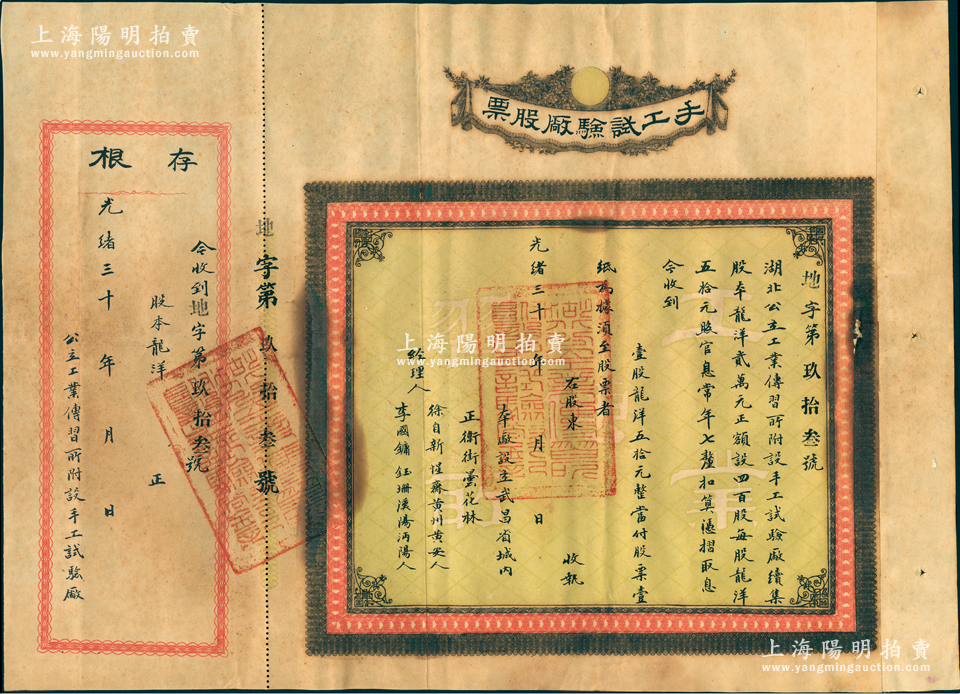 上海陽明拍賣
www.yangmingauction.com
手工試驗廠股票
地字第玖拾叁號
湖北公立工業傳習所附設手工試驗廠續集
股本龍洋貳萬元正額設四百股每股龍洋
五拾元照官息常年七釐扣算憑摺取息
今收到
壹股龍洋五拾元整當付股票壹
紙為據須至股票者
右股東
收執
光緒三十 年 月 日
本廠設立武昌省城內
正衛街曇花林
經理人
徐自新 惺齋黃州黃安人
李國鏞 鈺珊漢陽沔陽人
工業
地字第玖拾叁號
存根
今收到地字第玖拾叁號
股本龍洋 正
光緒三十 年 月 日
公立工業傳習所附設手工試驗廠
上海陽明拍賣
www.yangmingauction.com
上海陽明拍賣
www.yangmingauction.com